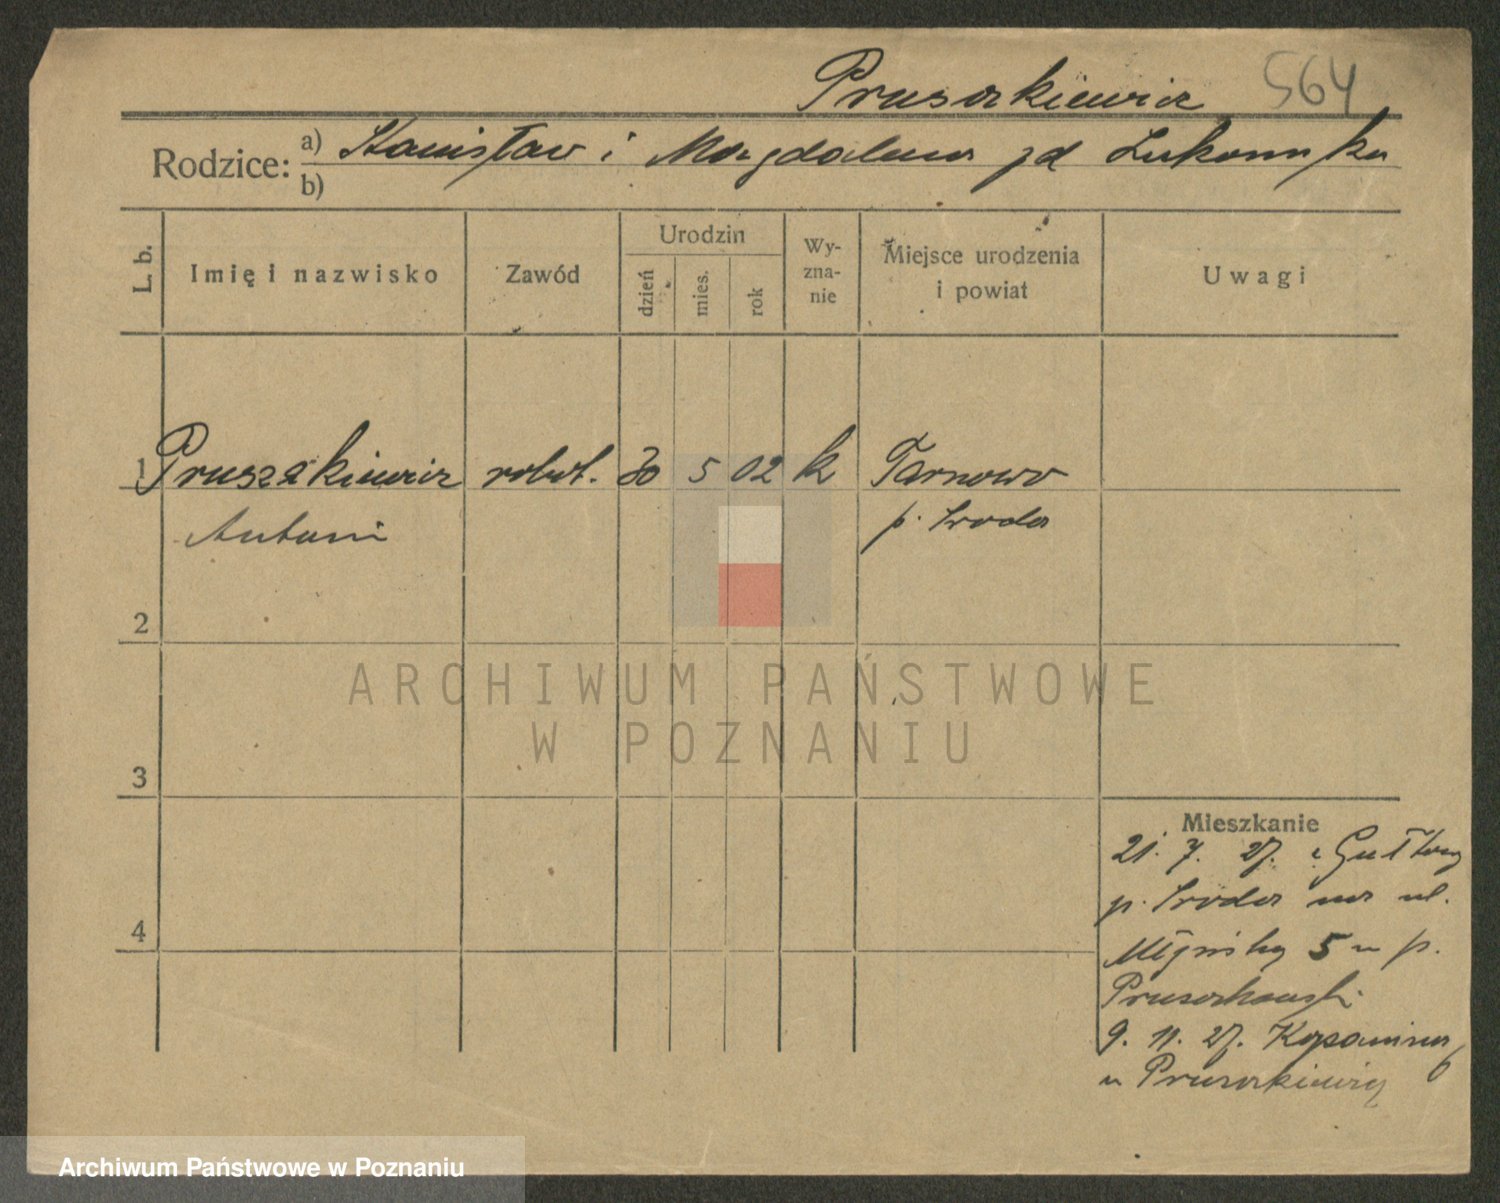 Pruszkiewicz 564
Rodzice: a) Stanisław i Magdalena zd
b)
L. b. Imię i nazwisko Zawód Urodzin dzień mies. rok Wyznanie Miejsce urodzenia i powiat Uwagi
1 Pruszakiewicz robot. 30 5 02 k Tarnowo
Antoni p. Środa
2
3
4
Mieszkanie
21. 7. 27. z Gułtowy
p. Środa na ul.
5 u p.
9. 11. 27.
u Pruszakiewicz
ARCHIWUM PAŃSTWOWE
W POZNANIU
Archiwum Państwowe w Poznaniu